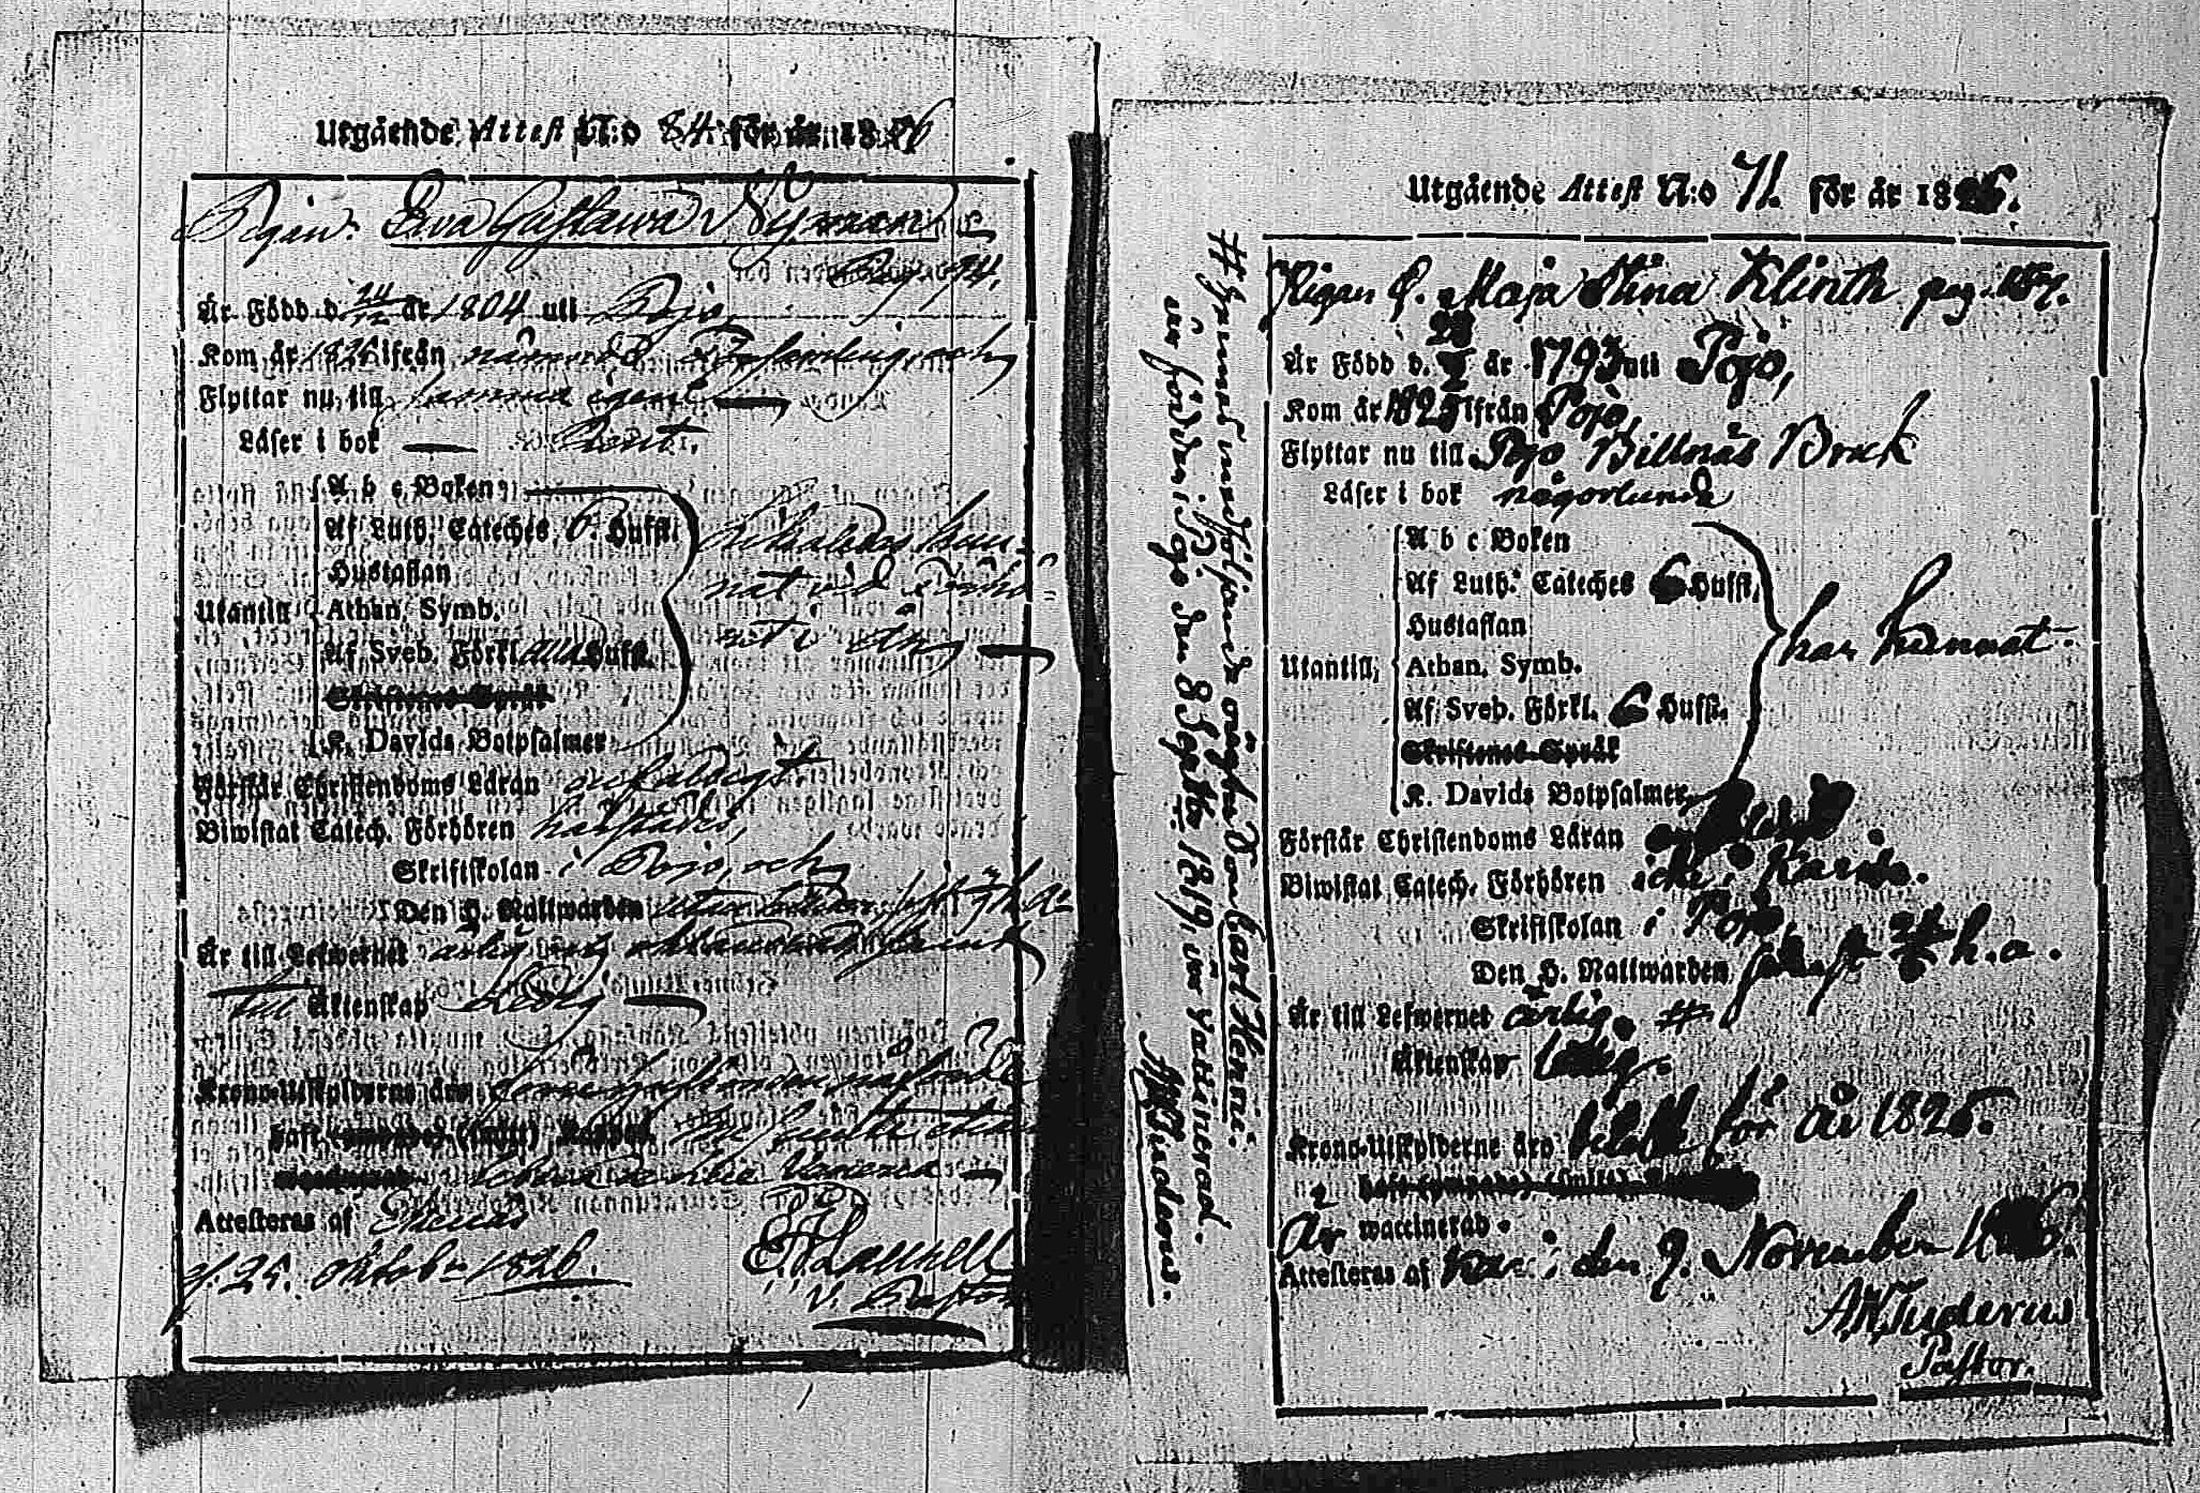 Utgående Attest N:o 84 för år 1826
Pigan Eva Gustawa Nyman
Pag. 94.
Är Född d 24/12 år 1804 uti Pojo,
Kom år 1826 ifrån nämnde Församling, och
Flyttar nu till samma igen
Läser i bok
Utantill
A b c Boken
Af Luth. Cateches 6. Hufst.
Hustaflan
Athan. Symb.
Af Sveb. Förkl. alla Hufst.
Skriftenes Språk
K. Davids Botpsalmer
nat vid
Förstår Christendoms Läran enfaldigt
Biwistat Catech. Förhören härstädes,
Skriftskolan i Pojo, och
Den H. Nattwarden
Är till Lefwernet ärlig och
till Äktenskap Ledig
Krono-Utskylderne äro
haft
Attesteras af Ekenäs
d. 25. Oktober 1826.
V. Pastor
Utgående Attest N:o 71. för år 1826.
Pigan Maja Stina Klinth pag. 157.
Är Född d. år 1793 uti Pojo,
Kom år 1825 ifrån Pojo,
Flyttar nu till Pojo Billnäs Bruk
Läser i bok någorlunda
Utantill,
A b c Boken
Af Luth. Cateches 6 Hufst.
Hustaflan
Athan. Symb.
Af Sveb. Förkl. 6 Hufst.
Skriftenes Språk
K. Davids Botpsalmer
har kunnat.
Förstår Christendoms Läran
Biwistat Catech. Förhören icke i Karis.
Skriftskolan i Pojo
Den H. Nattwarden h. a.
Är till Lefwernet ärlig. #
Äktenskap ledig.
Krono-Utskylderne äro betalte för År 1826.
Är waccinerad.
Attesteras af Karis den 9. November 1826.
A W Tuderus
Pastor.
# Hennes medföljande oägta Son Carl Henric
är född i Pojo den 8 Sept. 1819, är Vaccinerad.
A W Tuderus.